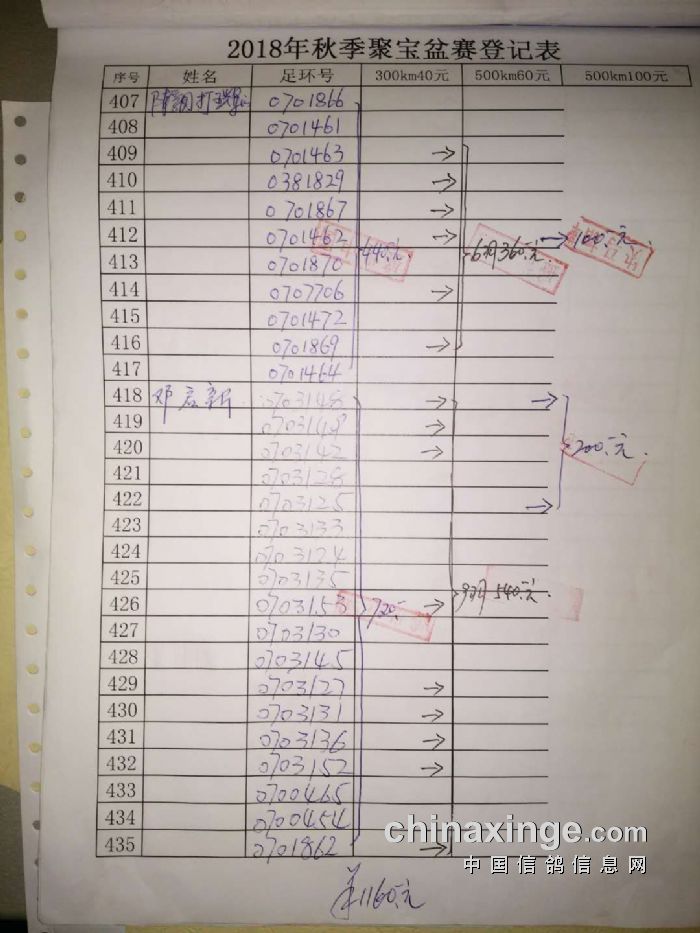 2018年秋季聚宝盆赛登记表
序号 姓名 足环号 300km40元 500km60元 500km100元
407 0701866
408 0701461
409 0701463 →
410 0381829 →
411 0701867 →
412 0701462 → 440元 6羽360元 → 100元
413 0701870
414 0707706 →
415 0701472
416 0701869 →
417 0701464
418 邓启新 0703148 → →
419 →
420 0703142 → 200元
421 0703128
422 0703125 →
423 0703133
424 0703124
425 0703135
426 0703153 720 → 9羽540元
427 0703130
428 0703145
429 0703127 →
430 0703131 →
431 0703136 →
432 0703152 →
433 0700465
434 0700454
435 0701862 →
1160元
chinaxinge.com
中国信鸽信息网